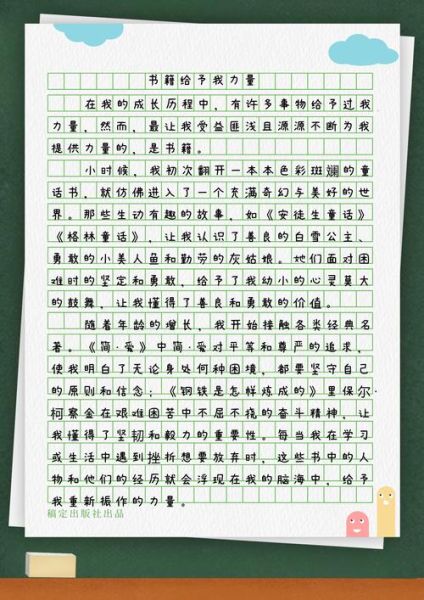 书籍给予我力量
在我的成长历程中，有许多事物给予过我
力量，然而，最让我受益匪浅且源源不断为我
提供力量的，是书籍。
小时候，我初次翻开一本本色彩斑斓的童
话书，就仿佛进入了一个充满奇幻与美好的世
界。那些生动有趣的故事，如《安徒生童话》
《格林童话》，让我认识了善良的白雪公主、
勇敢的小美人鱼和勤劳的灰姑娘。她们面对困
难时的坚定和勇敢，给予了我幼小的心灵莫大
的鼓舞，让我懂得了善良和勇敢的价值。
随着年龄的增长，我开始接触各类经典名
著。《简·爱》中简·爱对平等和尊严的追求，
使我明白了无论身处何种困境，都要坚守自己
的原则和信念；《钢铁是怎样炼成的》里保尔·
柯察金在艰难困苦中不屈不挠的奋斗精神，让
我懂得了坚韧和毅力的重要性。每当我在学习
或生活中遇到挫折想要放弃时，这些书中的人
物和他们的经历就会浮现在我的脑海中，给予
我重新振作的力量。
稿定出版社出品